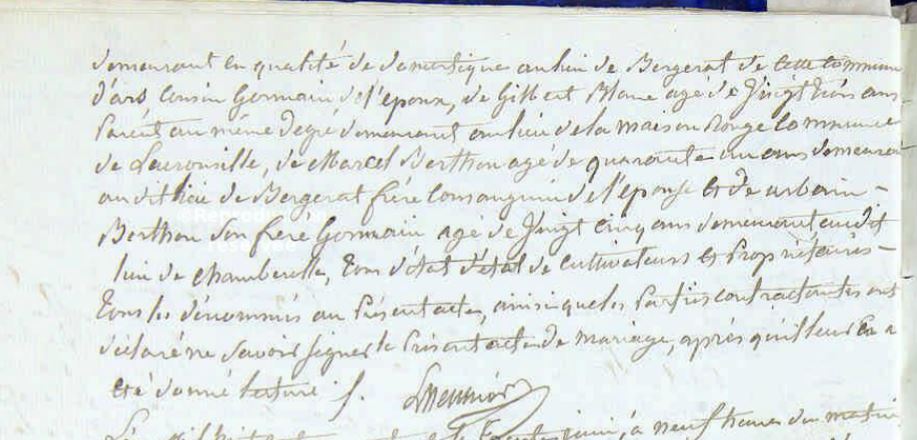 demeurant en qualité de domestique au lieu de Bergerat de cette commune
d'ars, Cousin Germain de l'epoux, de Gilbert Blanc agé de Vingt trois ans
Parent au même degré demeurant au lieu de la maison Rouge Commune
de, de Marcel Berthon agé de quarante un ans demeurant
au dit lieu de Bergerat frére Consanguin de l'epouse et de urbain
Berthon son frere Germain agé de Vingt cinq ans demeurant audit
lieu de chamberelle, tous d'état d'état de cultivateurs et Propriétaires
tous les dénommés au Présent acte, ainsi que les Parties contractantes ont
déclaré ne Savoir Signer le Présent acte de mariage, après qu'il leur en a
eté donné lecture ./.
L'an mil huit cent juin, à neuf heures du matin